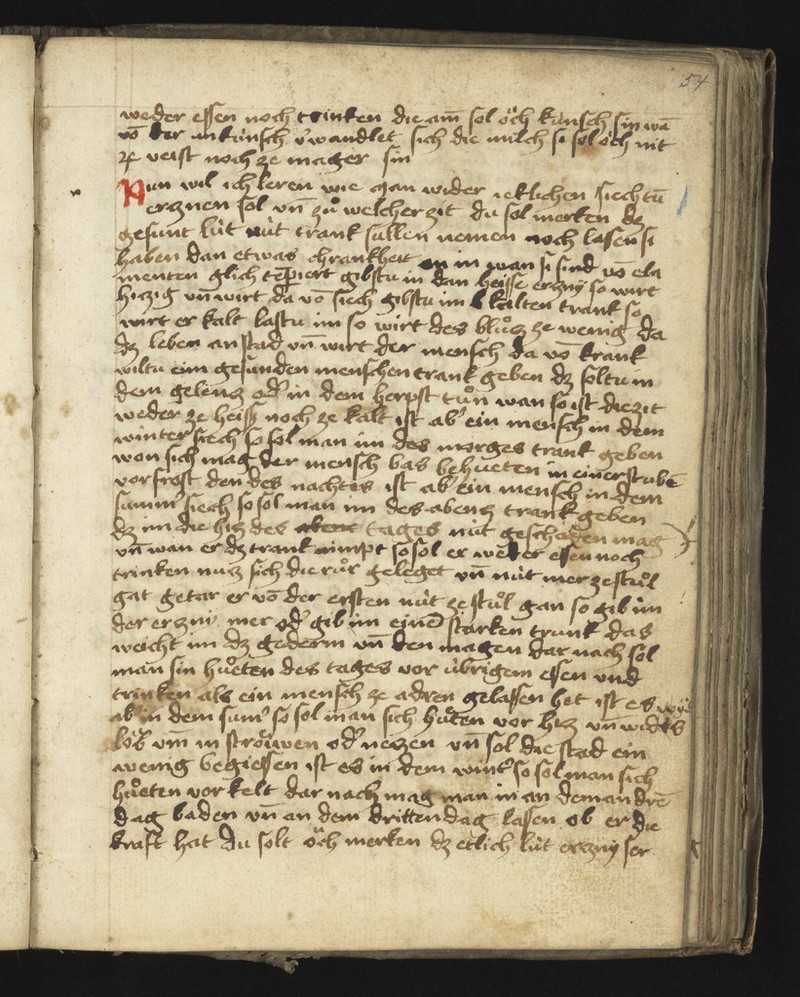 54
weder essen noch trinken die am̄ sol öch kùnsch sin wā
vō der unkùnsch v'wandlet sich die milch si sol öch nit
ze veist noch ze mager sin
Nun wil ich leren wie man wider ieklichen siechtū
erznen sol vn̄ zů welcher zit du sol merken dz
gesunt lùt nùt trank sùllen nemen noch lassen si
haben dan etwas chrankheit an in wan si sind vō ela
menten glich tēperiert gibstu in dan heisse erzny so wirt
hizig vn̄ wirt da vō siech gibstu im kalten trank so
wirt er kalt lastu im so wirt des blůz ze wenig da
dz leben an stad vn̄ wirt der mensch da vō krank
wiltu eim gesunden menschen trank geben dz soltu in
dem gelenz od' in dem herpst tůn wan so ist die zit
weder ze heiss noch ze kalt ist ab' ein mensch in dem
winter siech so sol man im des morges trank geben
won sich mag der mensch bas behueten in einer stubē
vor frost den des nachtes ist ab' ein mensch in dem
summ' siech so sol man im des abenz trank geben
dz im die hiz des tages nùt geschaden mag
vn̄ wan er dz trank nimpt so sol er weder essen noch
trinken nuiz sich die růr geleget vn̄ nùt mer ze stůl
gat getar er vō der ersten nùt ze stůl gan so gib im
der erzni mer od' gib im einē starken trunk das
weicht im dz gederm vn̄ den magen dar nach sol
man sin hueten des tages vor ùbrigem essen vnd
trinken als ein mensch ze adren gelassen het ist es
ab' in dem sum' so sol man sich hueten vor hiz vn̄
löb vm̄ in ströwen od' nezen vn̄ sol die stad ein
wenig begiessen ist es in dem wint' so sol man sich
hueten vor kelt dar nach mag man in an dem andrē
dag baden vn̄ an dem dritten dag lassen ob er die
kraft hat du solt öch merken dz etlich lùt erzny ser